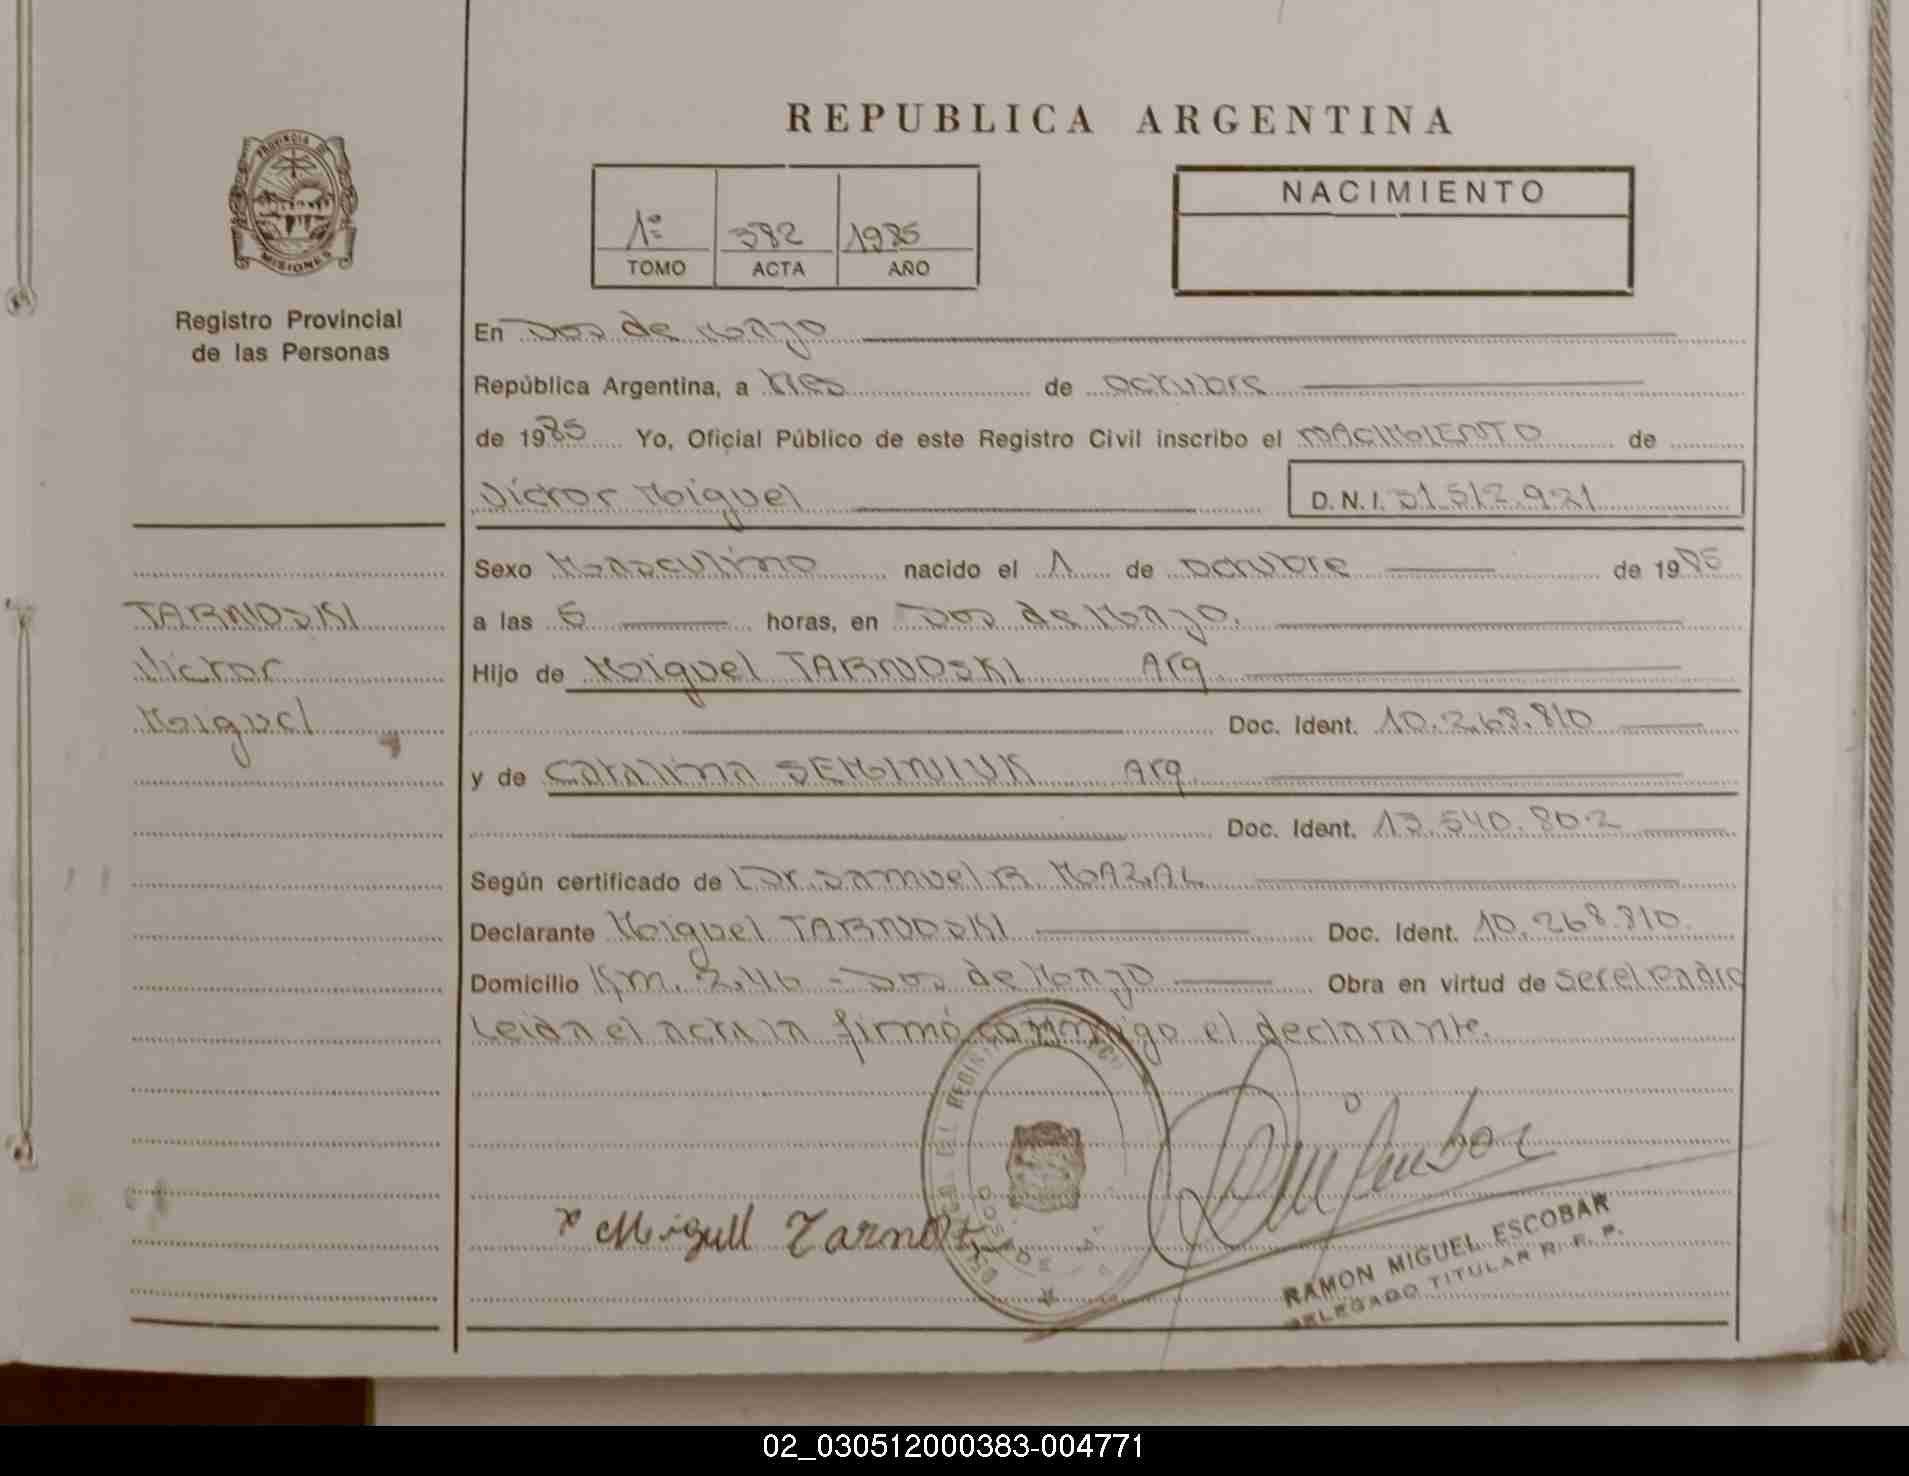 REPUBLICA ARGENTINA
PROVINCIA DE
MISIONES
Registro Provincial
de las Personas
1º 382 1985
TOMO ACTA AÑO
NACIMIENTO
En Dos de Mayo
República Argentina, a tres de octubre
de 1985 Yo, Oficial Público de este Registro Civil inscribo el NACIMIENTO de
Víctor Miguel D.N.I. 31.512.921
Sexo Masculino nacido el 1 de octubre de 1985
a las 6 horas, en Dos de Mayo.
Hijo de Miguel TARNOSKI Arg
Doc. Ident. 10.268.810
y de Catalina SEMINIUK Arg
Doc. Ident. 13.540.802
Según certificado de Dr. Samuel R. MAZAL
Declarante Miguel TARNOSKI Doc. Ident. 10.268.810.
Domicilio Km. 246 - Dos de Mayo Obra en virtud de ser el padre
Leida el acta la firmó conmigo el declarante.
TARNOSKI
Víctor
Miguel
x Migull Tarnos
RAMON MIGUEL ESCOBAR
DELEGADO TITULAR R. P. P.
02_030512000383-004771